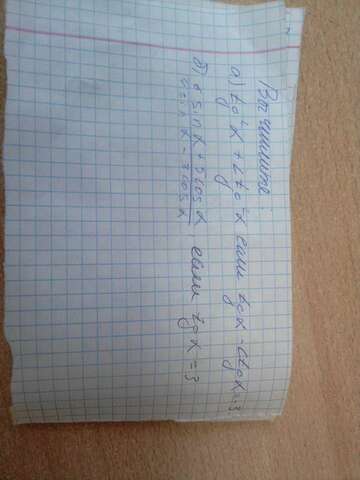 Вычислите:
а) tg²α + ctg²α если tgα - ctgα = -3
б) sinα + 5cosα / sinα - 3cosα если tgα = 3